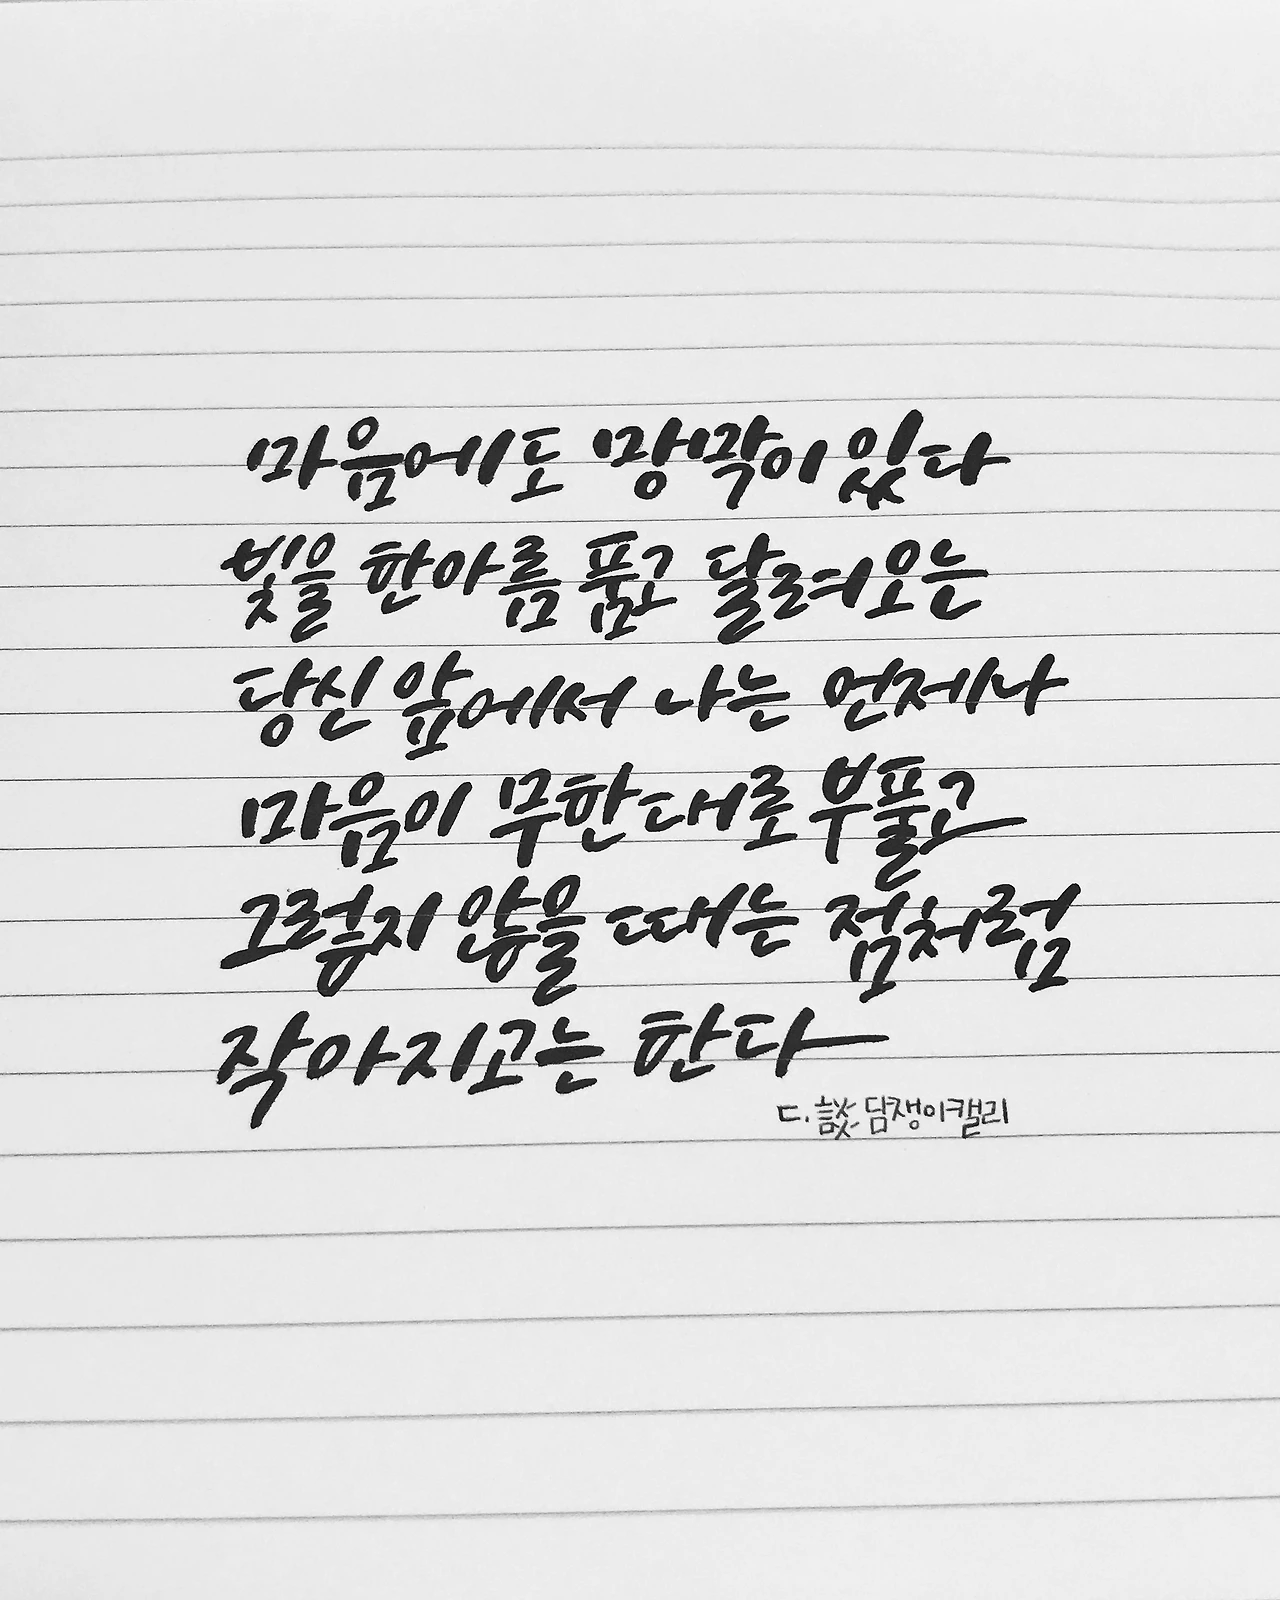 마음에도 망막이 있다
빛을 한아름 품고 달려오는
당신 앞에서 나는 언제나
마음이 무한대로 부풀고
그렇지 않을 때는 점처럼
작아지고는 한다
ㄷ. 談 담쟁이캘리